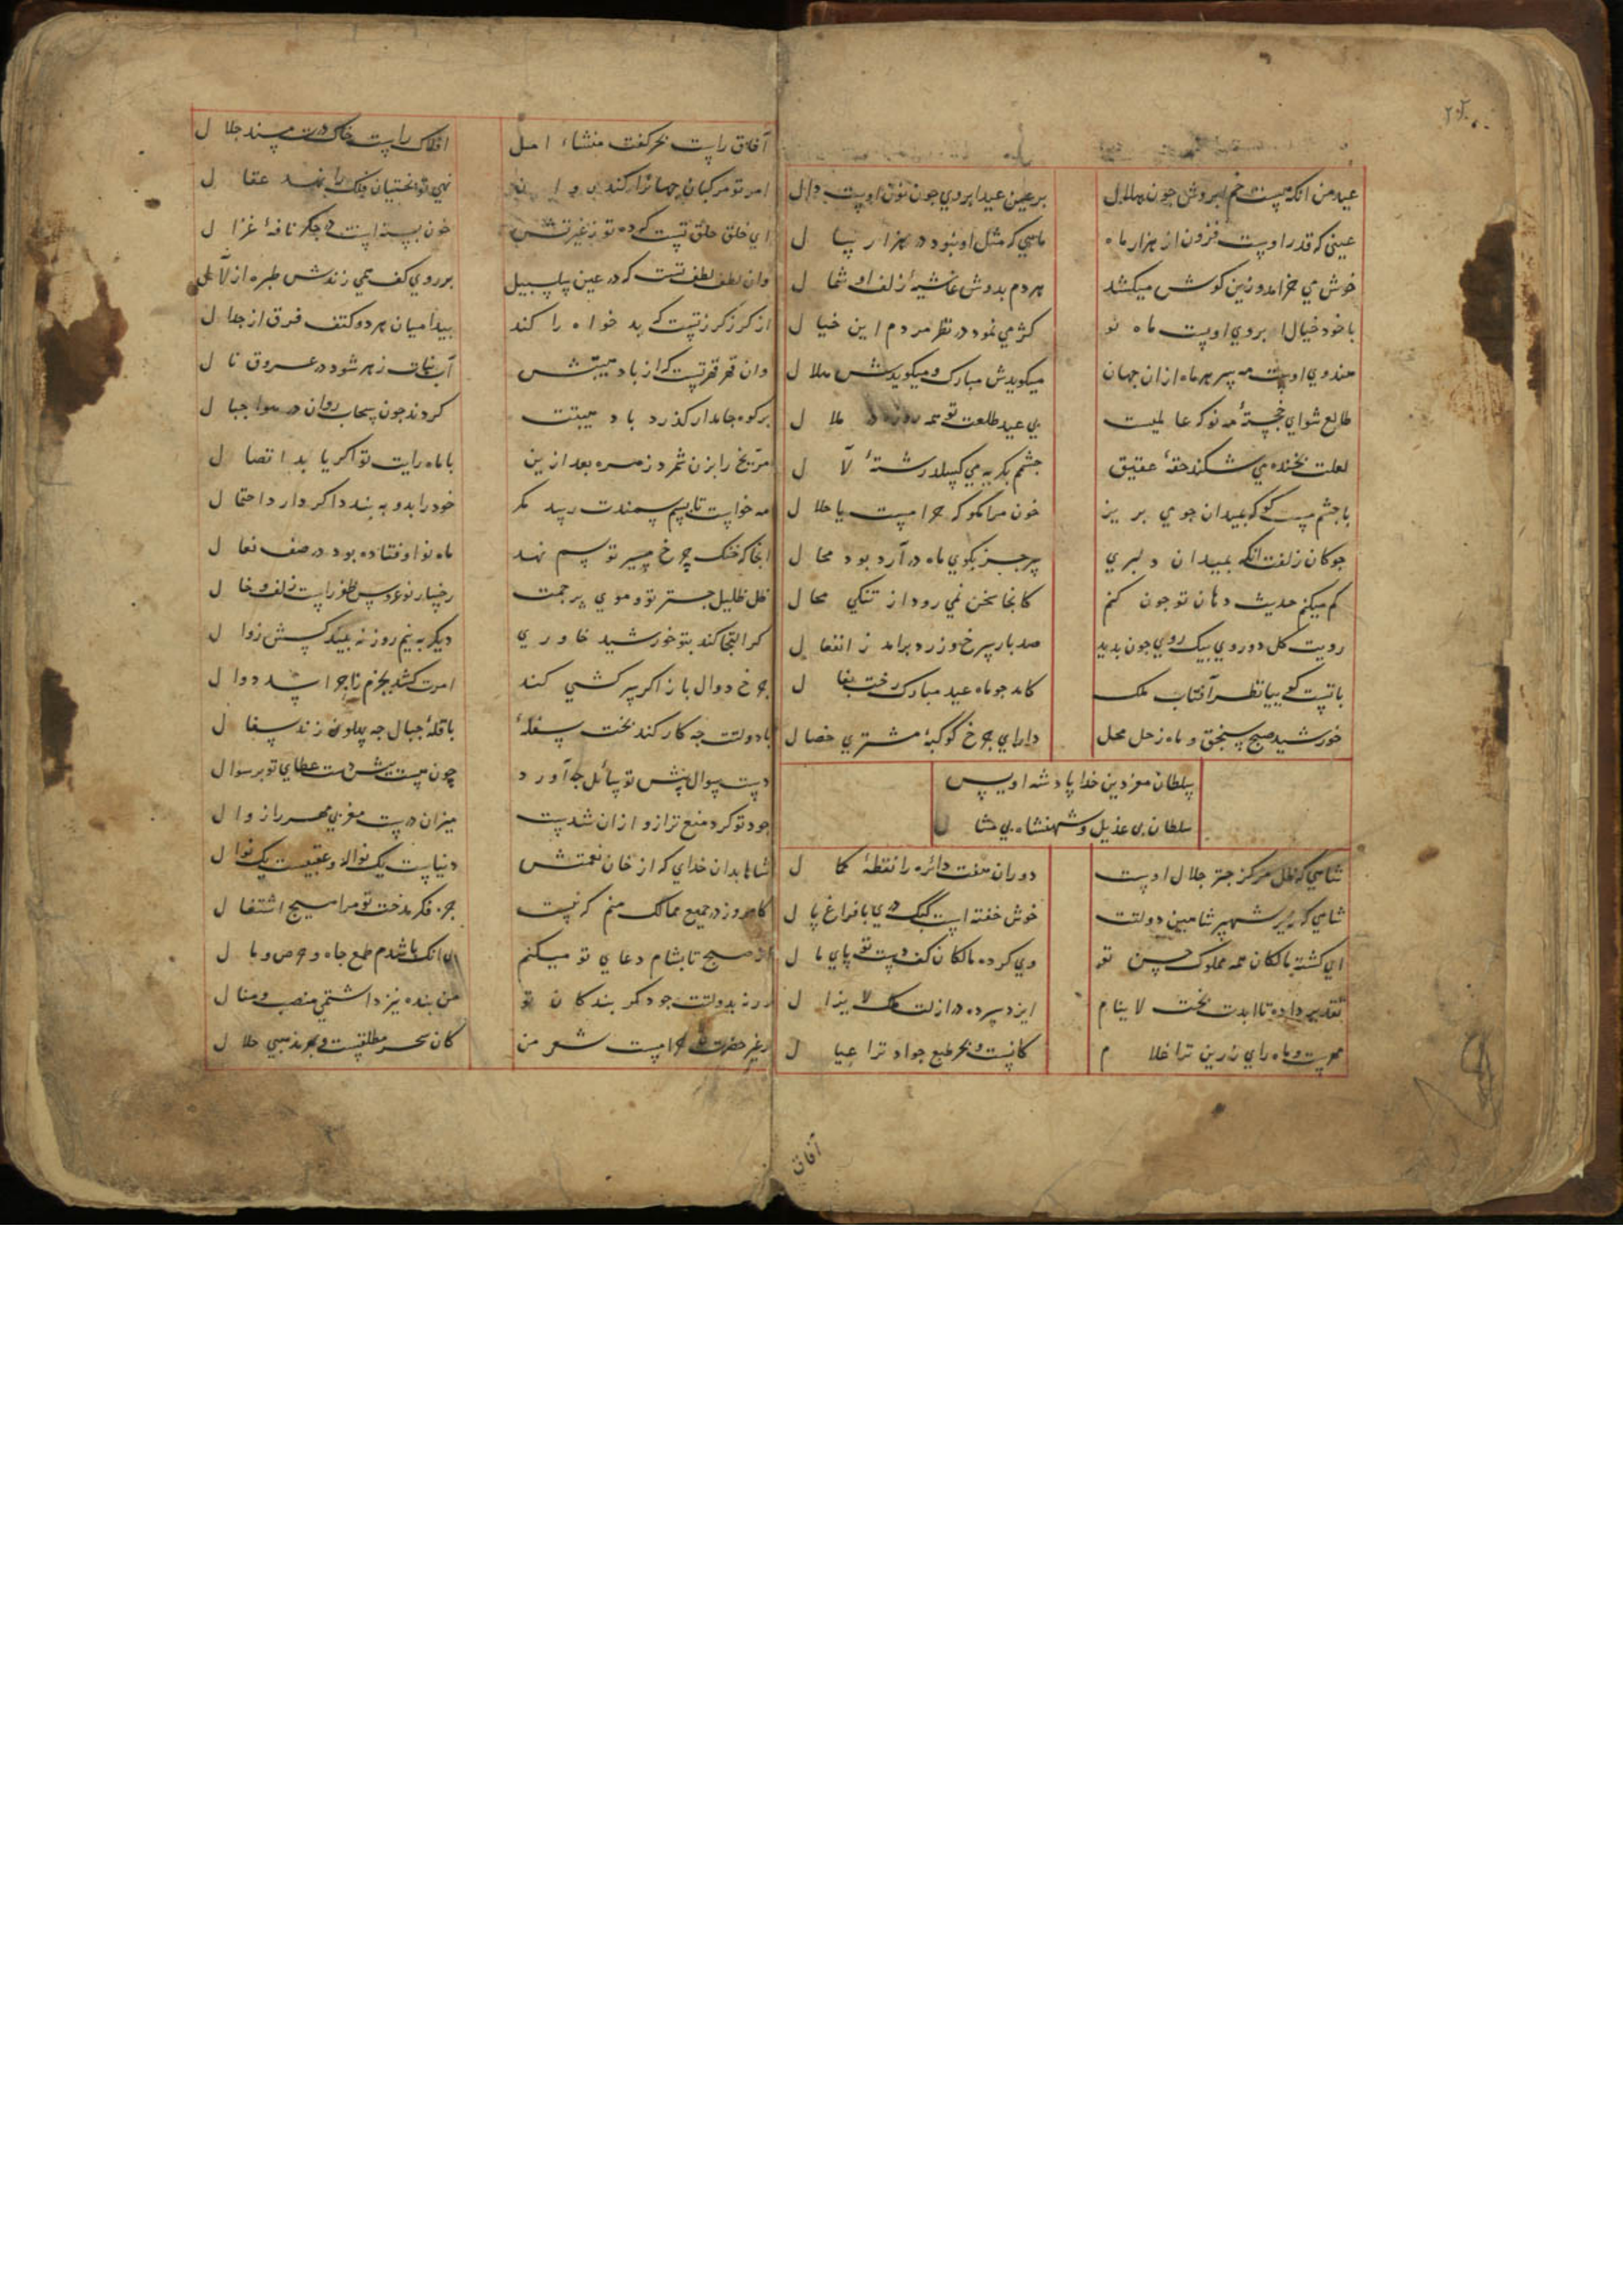 عید من انکه هست خم ابروش جون هلال    بر عین عید ابروی جون نون اوست دال
عیدی که قدر اوست فزون از هزار ماه    ماهی که مثل او نبود در هزار سال
خوش می خرامد و زین کوش میکشد    هر دم بدوش غاشیهٔ زلف او شمال
با خود خیال ابروی اوپست ماه نو    کژ می نمود در نظر مردم این خیال
هندوی اوست مه سر هر ماه ازان جهان    میکویدش مبارک و میکویدش هلال
طالع شو ای خجستهٔ مه نو که عالمیست    بی عید طلعت تو همه روزه در ملال
لعلت بخنده می شکند حقهٔ عقیق    جشم بکریه می کسلد رشتهٔ لآل
با جشم مست کو که بمیدان جوی بریز    خون مرا مکو که حرامست یا حلال
جوکان زلفت انکه بمیدان دلبری    سر جز بکوی ماه در آرد بود محال
کم میکنم حدیث دهان تو جون کنم    کانجا سخن نمی رود از تنکی مجال
رویت کل دوروی بیک روی جون بدید    صد بار سرخ و زرد برامد ز انفعال
باتست کویی بیا نظر آفتاب ملک    کامد جو ماه عید مبارک رخت بفال
خورشید صبح سنجق و ماه زحل محل    دارای جرخ کوکبهٔ مشتری خصال
سلطان معز دین خدا پادشه اویس
سلطان بی عدیل و شهنشاه بی مثال
شاهی که ظل مرکز جتر جلال اوست    دوران هفت دائره را نقطهٔ کمال
شاهی که زیر شهپر شاهین دولتت    خوش خفته است کبک دری با فراغ بال
ای کشته مالکان همه مملوک حسن تو    وی کرده مالکان کف دست تو پای مال
تقدیر داده تا ابدت بخت لا ینام    ایزد سپرده در ازلت ملک لا یزال
مهرست و ماه رای زرین ترا غلام    کانست و بحر طبع جواد ترا عیال
آفاق
آفاق راست بحر کفت منشاء امل    افلاک راست خاک درت مسند جلال
امر تو مرکبان جهانرا کند    نهی تو بختیان فلک را نهد عقال
ای خلق خلق تست که کرده تو ز غیرتش    خون بسته است در جکر نافهٔ غزال
وان لطف لطف تست که در عین سلسبیل    بر روی کف همی زندش طیره از لآل
از کرز کرز تست که بد خواه را کند    پیدا میان هر دو کتف فرق از جدال
وان قهر قهر تست که از باد هیبتش    آب نبات زهر شود در عروق نال
بر کوه جامد ار کذرد باد هیبتت    کردند جون سحاب روان در هوا جبال
مریخ را بزن شمرد زهره بعد ازین    با ماه رایت تو اکر یابد اتصال
مه خواست تا بسم سمندت رسد مکر    خود را بدو به بندد اکر دارد احتمال
انجا که خنک جرخ مسیر تو سم نهد    ماه نو اوفتاده بود در صف نعال
ظل ظلیل جتر تو و موی پرجمت    رخسار نوعروس ظفر راست زلف و خال
کر التجا کند بتو خورشید خاوری    دیکر به نیم روز نه بیند کسش زوال
جرخ دوال باز اکر سر کشی کند    امرت کشد بجزم ز اجراش دوال
با دولتت جه کار کند بخت سفلهٔ    با قلهٔ جبال جه پهلو زند سفال
دست سوال پیش تو سائل جه آورد    چون هست پیش دست عطای تو بر سوال
جود تو کرد منع ترازو ازان شدست    میزان درست مغربی مهر را زوال
شاها بدان خدای که از خان نعمتش    دنیاست یک نواله و عقبیست یک نوال
کامروز در جمیع ممالک منم که نیست    جز فکر مدحت تو مرا هیج اشتغال
از صبح تا بشام دعای تو میکنم    بی انک باشدم طمع جاه و حرص و مال
ورنه بدولتت جو دکر بندکان تو    من بنده نیز داشتمی منصب و منال
در غیر حضرت تو حرامست شعر من    کان سحر مطلقست و بهر مذهبی حلال